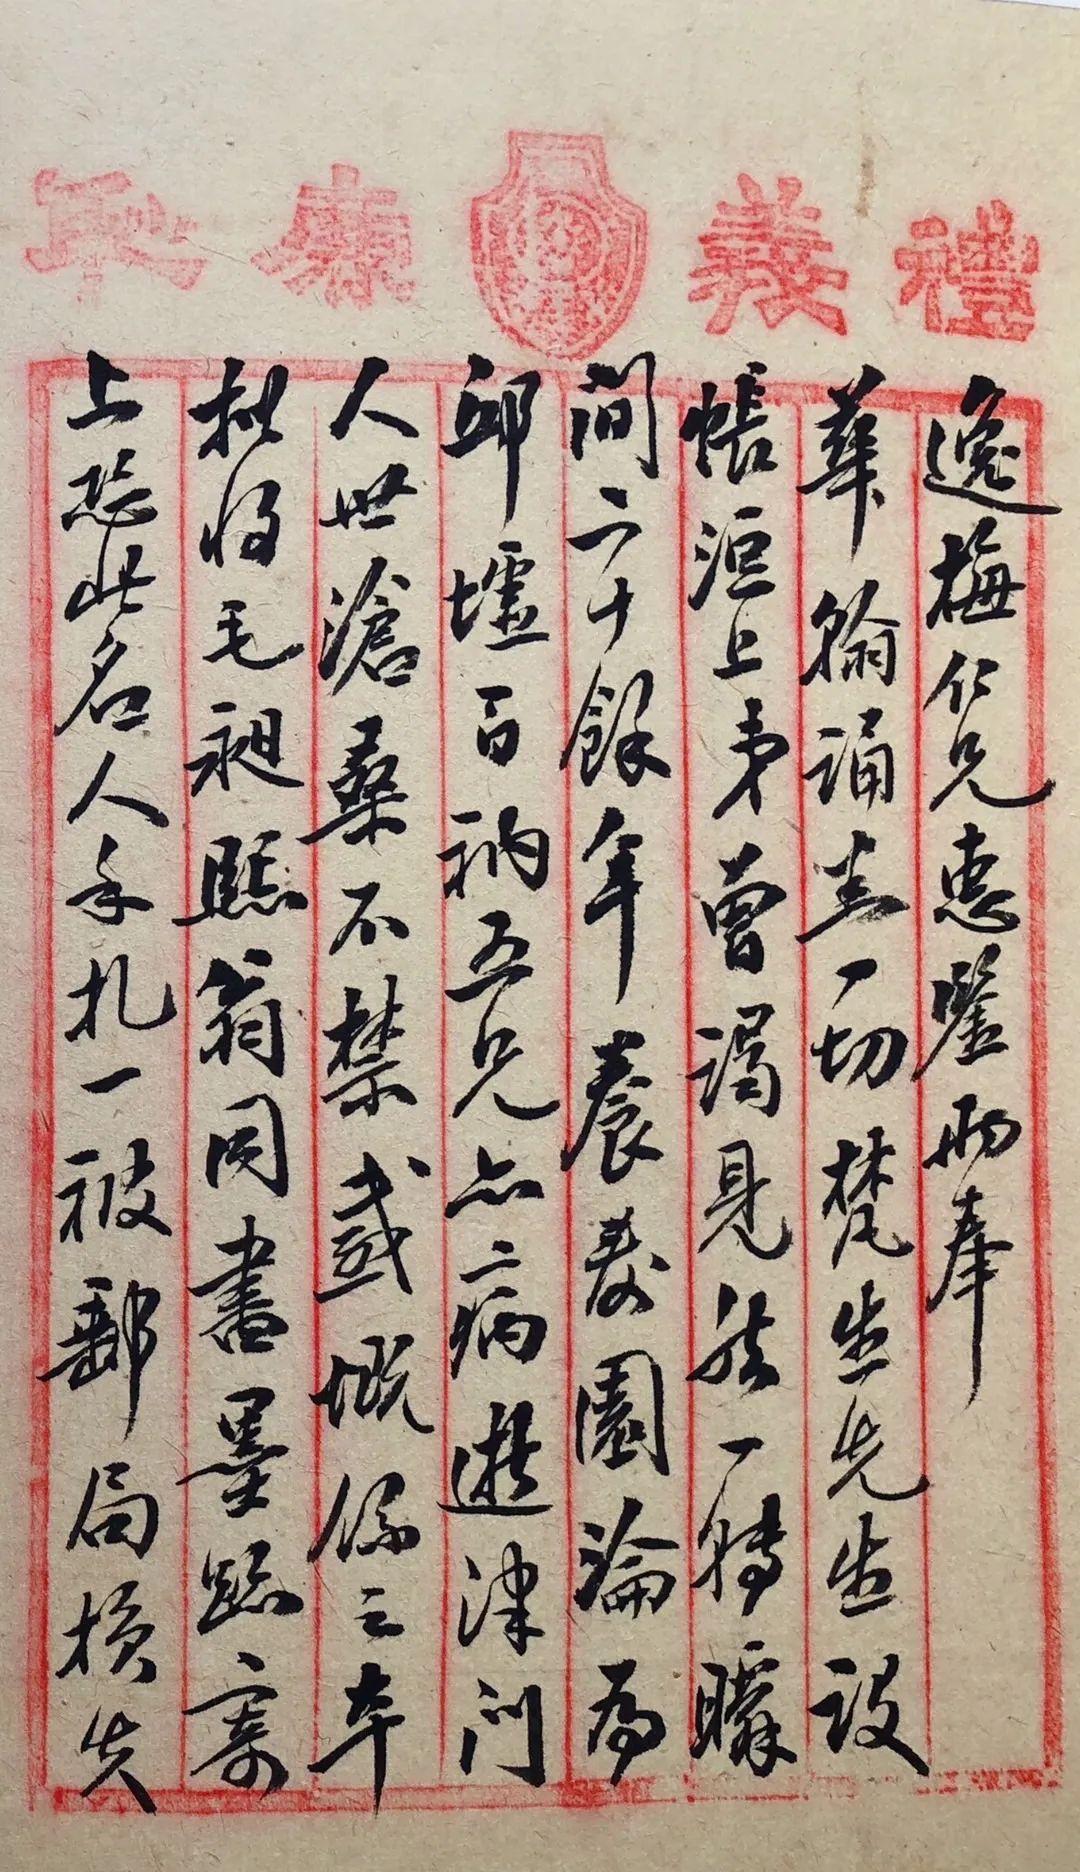 禮義廉恥
逸梅仁兄惠鑒兩奉
華翰誦悉一切梵生先生設
帳滬上弟曾謁見然一轉瞬
間二十餘年養壽園淪為
邱墟百衲五兄亦病逝津門
人世滄桑不禁感慨係之本
擬將毛昶熙翁同書墨跡寄
上恐此名人手扎一被郵局損失